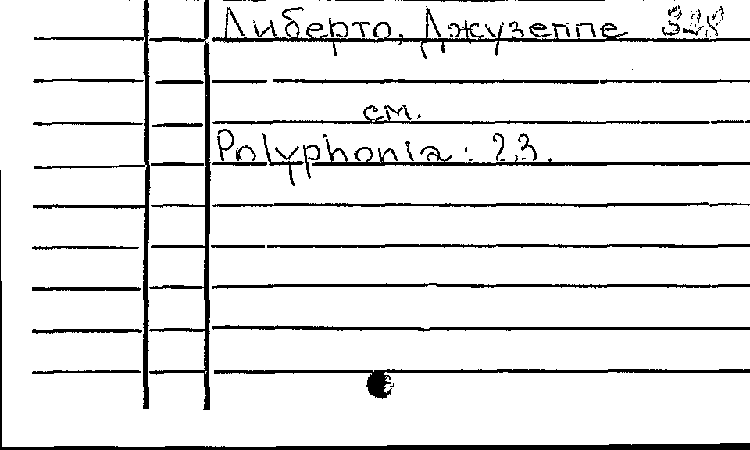 Либерто, Джузеппе 338
см.
Polyphonia: 23.